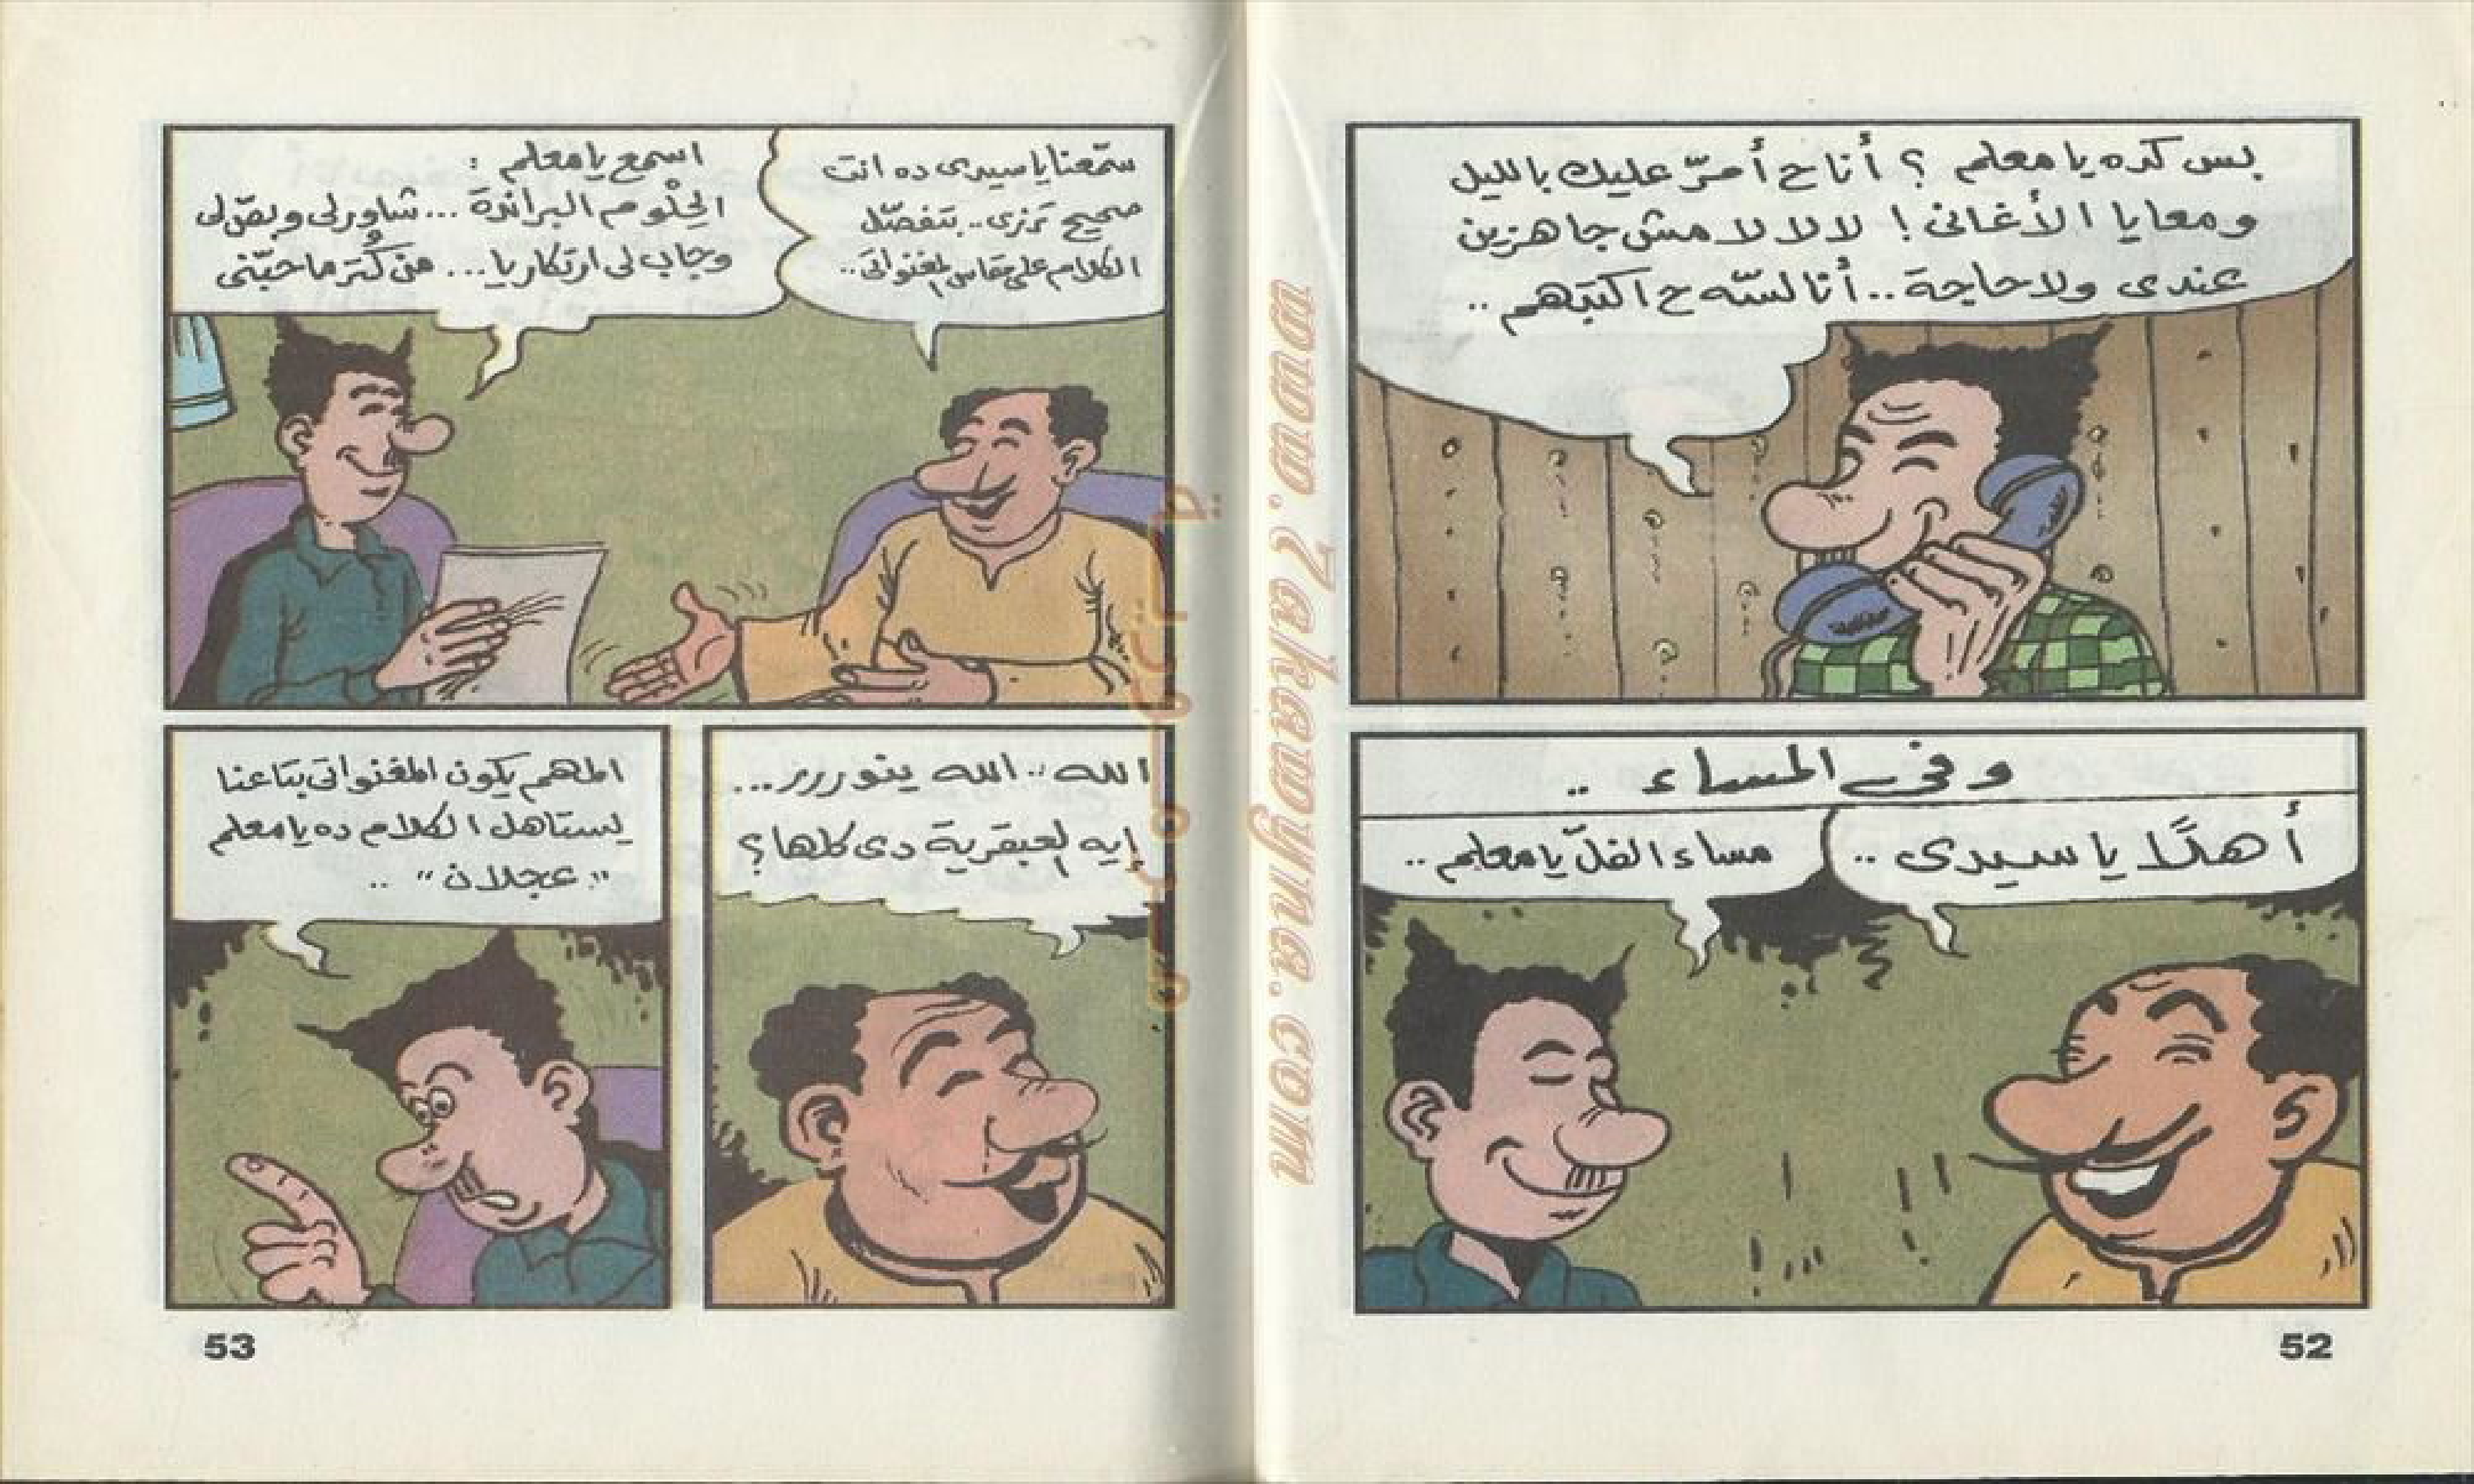 بس كده يا معلم ؟ أنا ح أمرّ عليك بالليل
ومعايا الأغانى ! لا لا لا مش جاهزين
عندى ولا حاجة .. أنا لسّه ح اكتبهم ..
وفى المساء ..
أهلًا يا سيدى ..
مساء الفلّ يا معلم ..
52
سمّعنا يا سيدى ده انت
صحيح ترزى .. بتفصّل
الكلام على مقاس المغنواتى ..
اسمع يا معلم :
الحِلْوم البراندة ... شاورلى وبصّ لى
وجاب لى ارتكاريا ... من كُتر ما حبّنى
الله .. الله ينوررر ...
إيه العبقرية دى كلها ؟
المهم يكون المغنواتى بتاعنا
يستاهل الكلام ده يا معلم
"عجلان" ..
53
www.7akawyna.com